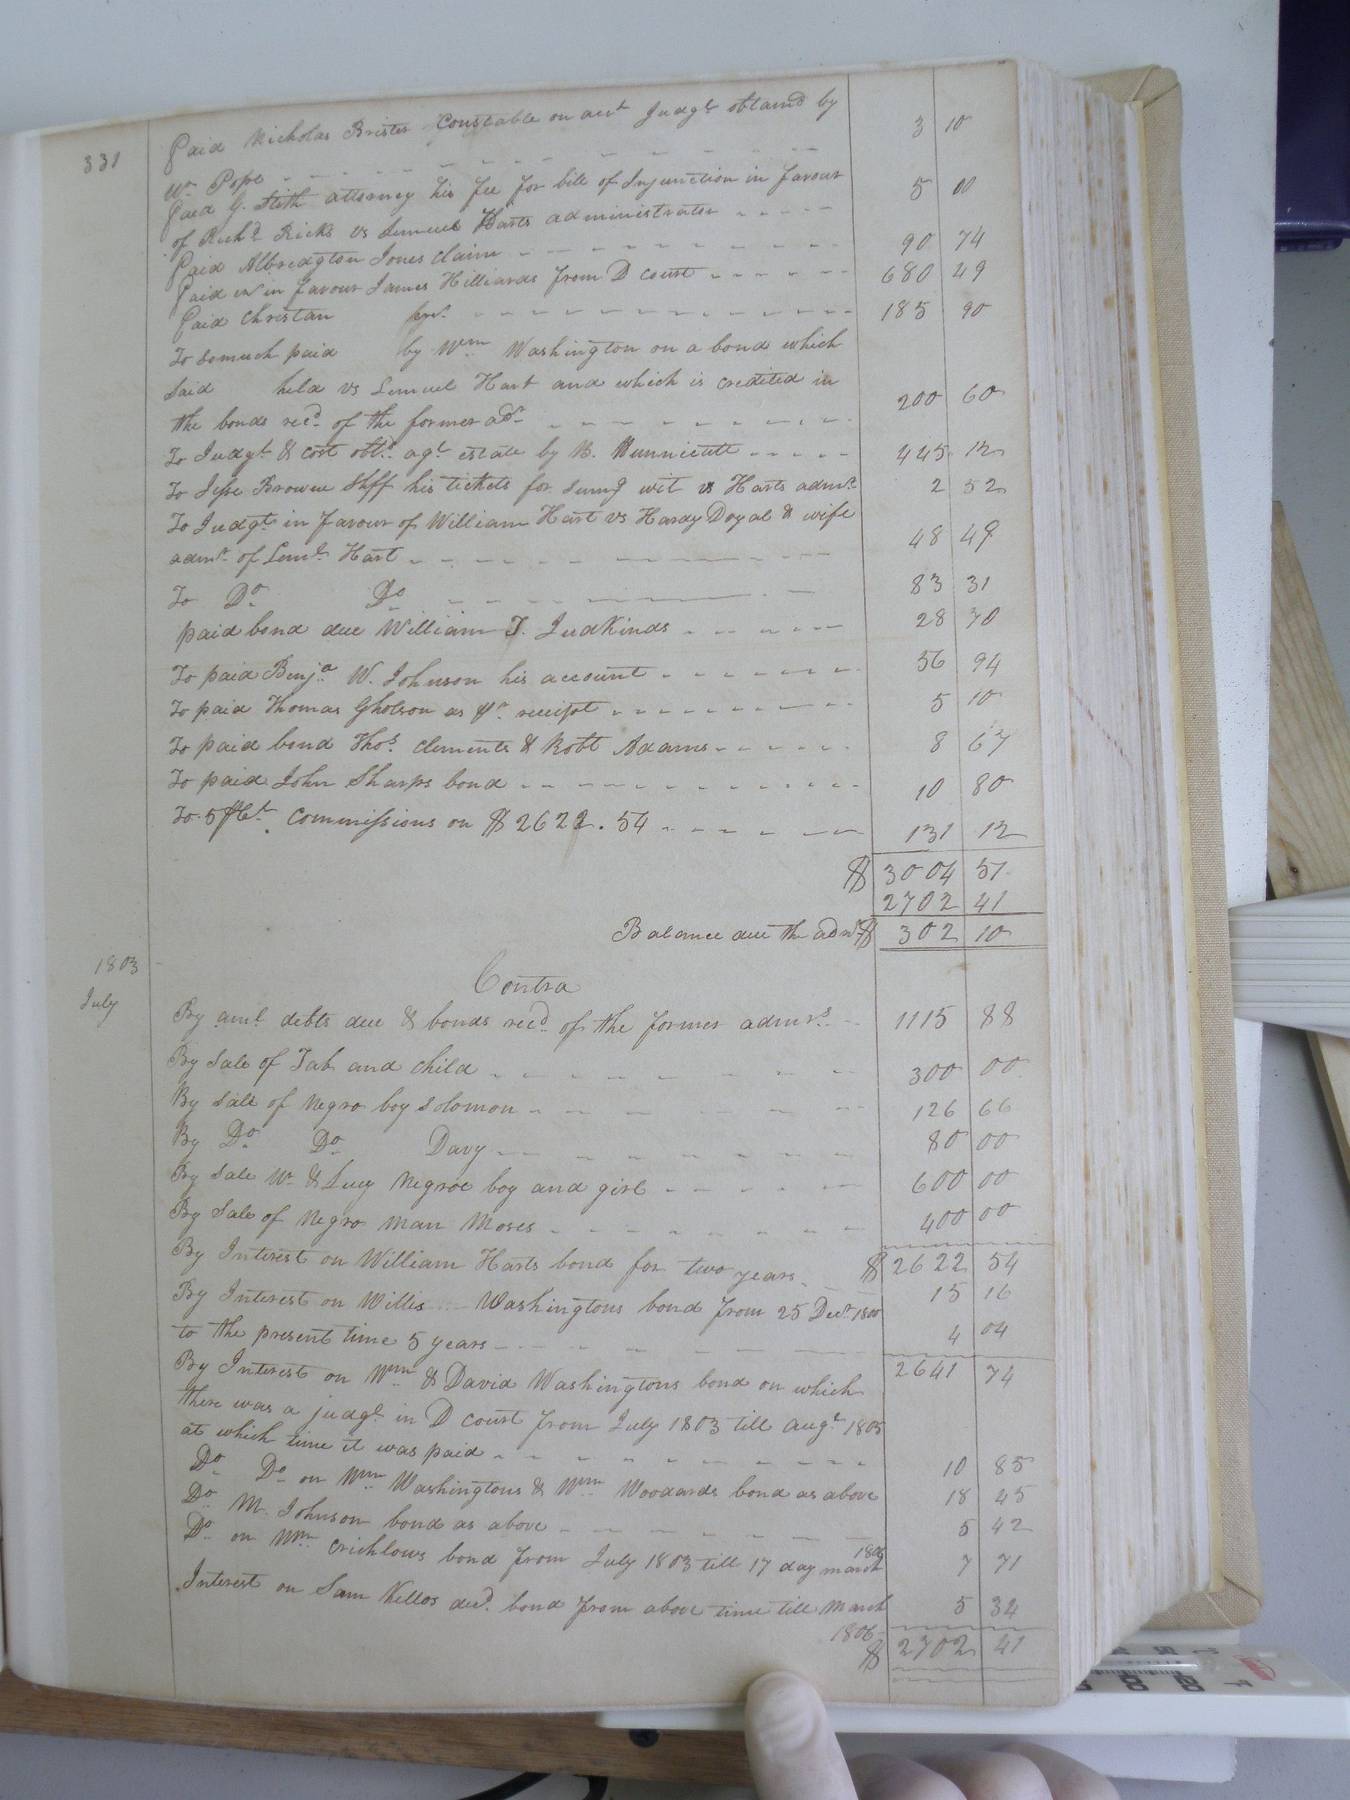 331
Paid Nicholas Brister Constable on acct Judgt obtaind by
Wm Pope 3 10
Paid G. Stith attorney his fee for bill of Injunction in favour
of Richd Ricks vs Lemuel Harts administrator 5 00
Paid Albredgton Jones claim 90 74
Paid in favour James Hilliards from D court 680 49
Paid Christan 185 90
To somuch paid by Wm Washington on a bond which
said held vs Lemuel Hart and which is credited in
the bonds recd of the former adr 200 60
To Judgt & cost obtd agt estate by B. Hunnicutt 445 12
To Jesse Browne Shff his tickets for sumg wit vs Harts admr 2 52
To Judgt in favour of William Hart vs Hardy Doyal & wife
admr of Leml Hart 48 49
To Do Do 83 31
paid bond due William J. Judkinds 28 70
To paid Benja W. Johnson his account 56 94
To paid Thomas Gholson as pr receipt 5 10
To paid bond Thos Clements & Robt Adams 8 67
To paid John Sharps bond 10 80
To 5 pCt Commissions on $ 2622.54 131 12
$ 3004 51
2702 41
Balance due the admr $ 302 10
1803
Contra
July
By amt debts due & bonds recd of the former admrs 1115 88
By Sale of Tab and child 300 00
By sale of negro boy solomon 126 66
By Do Do Davy 80 00
By sale Wm & Lucy Negroe boy and girl 600 00
By Sale of Negro man Moses 400 00
$ 2622 54
By Interest on William Harts bond for two years 15 16
By Interest on Willis Washingtons bond from 25 Decr 1800
to the present time 5 years 4 04
2641 74
By Interest on Wm & David Washingtons bond on which
there was a judgt in D court from July 1803 till augt 1805
at which time it was paid 10 85
Do Do on Wm Washingtons & Wm Woodards bond as above 18 45
Do M. Johnson bond as above 5 42
Do on Wm Crichlows bond from July 1803 till 17 day march 1806 7 71
Interest on Sam Kellos decd bond from above time till March
1806 5 34
$ 2702 41